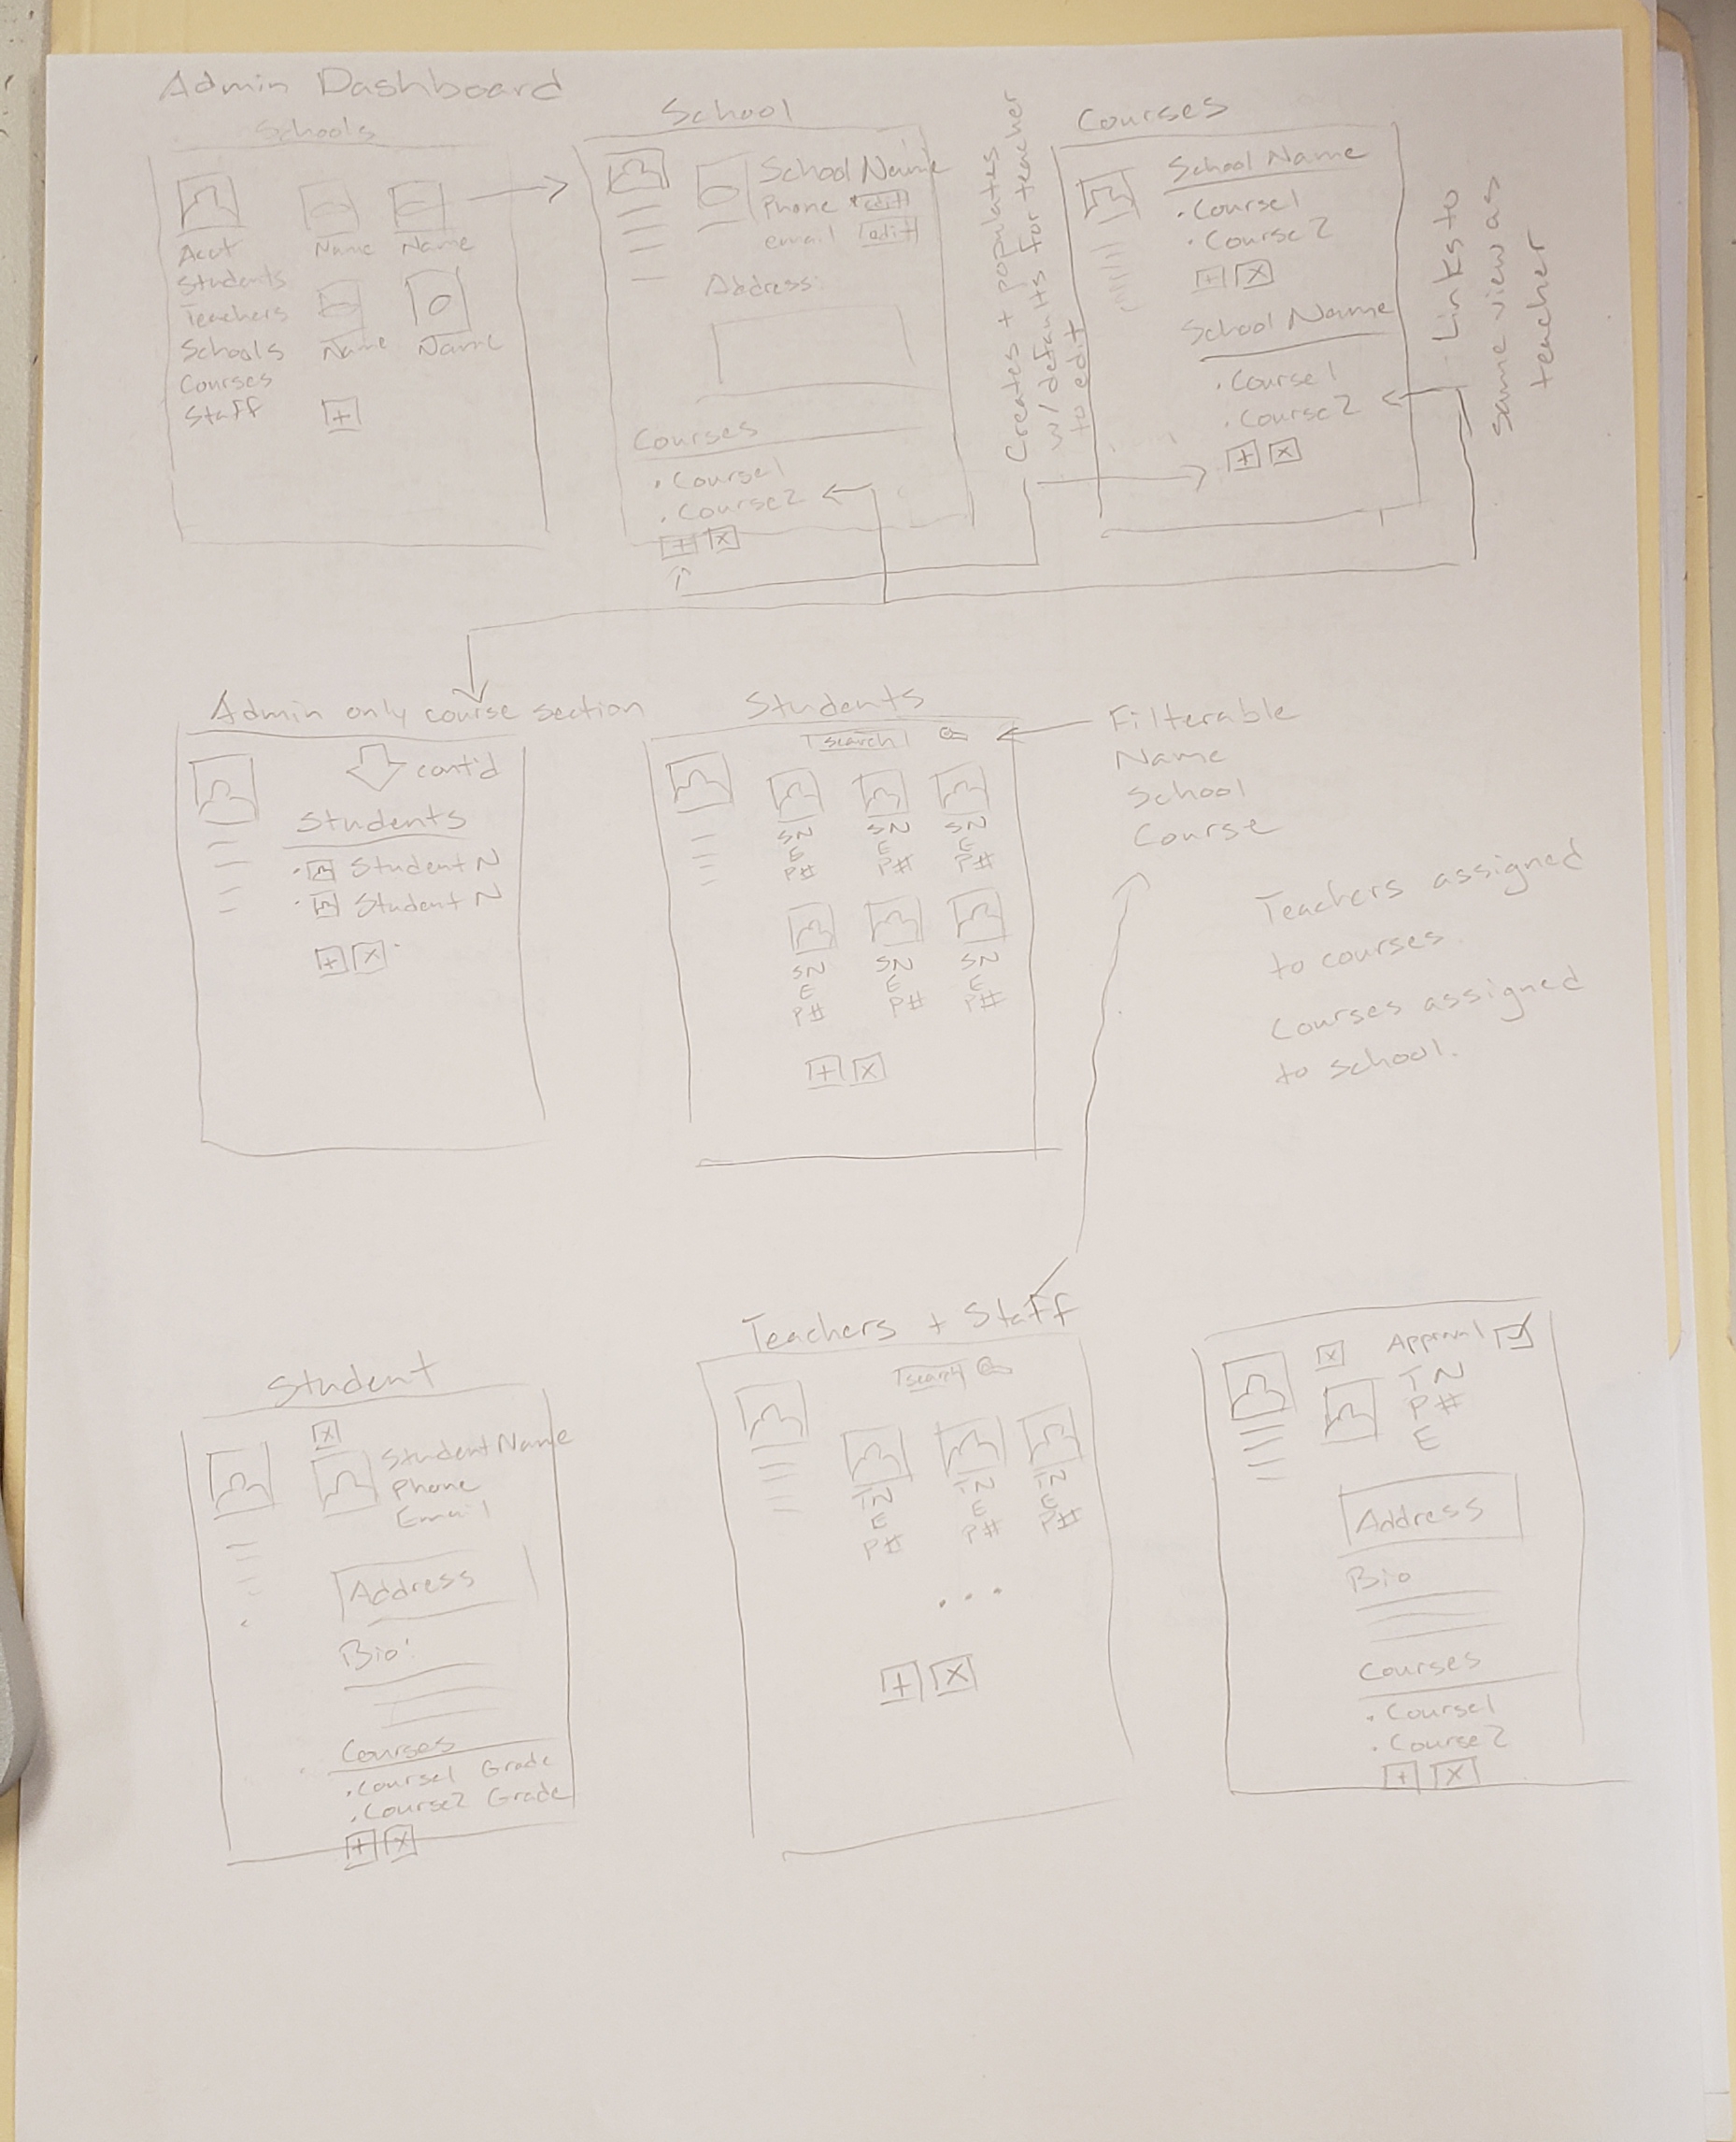 Admin Dashboard
Schools
Acct
Students
Teachers
Schools
Courses
Staff
Name
Name
Name
Name
+
School
School Name
Phone edit
email edit
Address:
Courses
· Course1
· Course2
+ x
Creates + populates
w/ defaults for teacher
to edit
Courses
School Name
· Course1
· Course2
+ x
School Name
· Course1
· Course2
+ x
Links to
same view as
teacher
Admin only course section
cont'd
Students
· Student N
· Student N
+ x
Students
search
SN SN SN
E E E
P# P# P#
SN SN SN
E E E
P# P# P#
+ x
Filterable
Name
School
Course
Teachers assigned
to courses.
Courses assigned
to school.
Student
x
Student Name
Phone
Email
Address
Bio:
Courses
· Course1 Grade
· Course2 Grade
+ x
Teachers + Staff
search
TN TN TN
E E E
P# P# P#
...
+ x
x Approval
TN
P#
E
Address
Bio
Courses
· Course1
· Course2
+ x